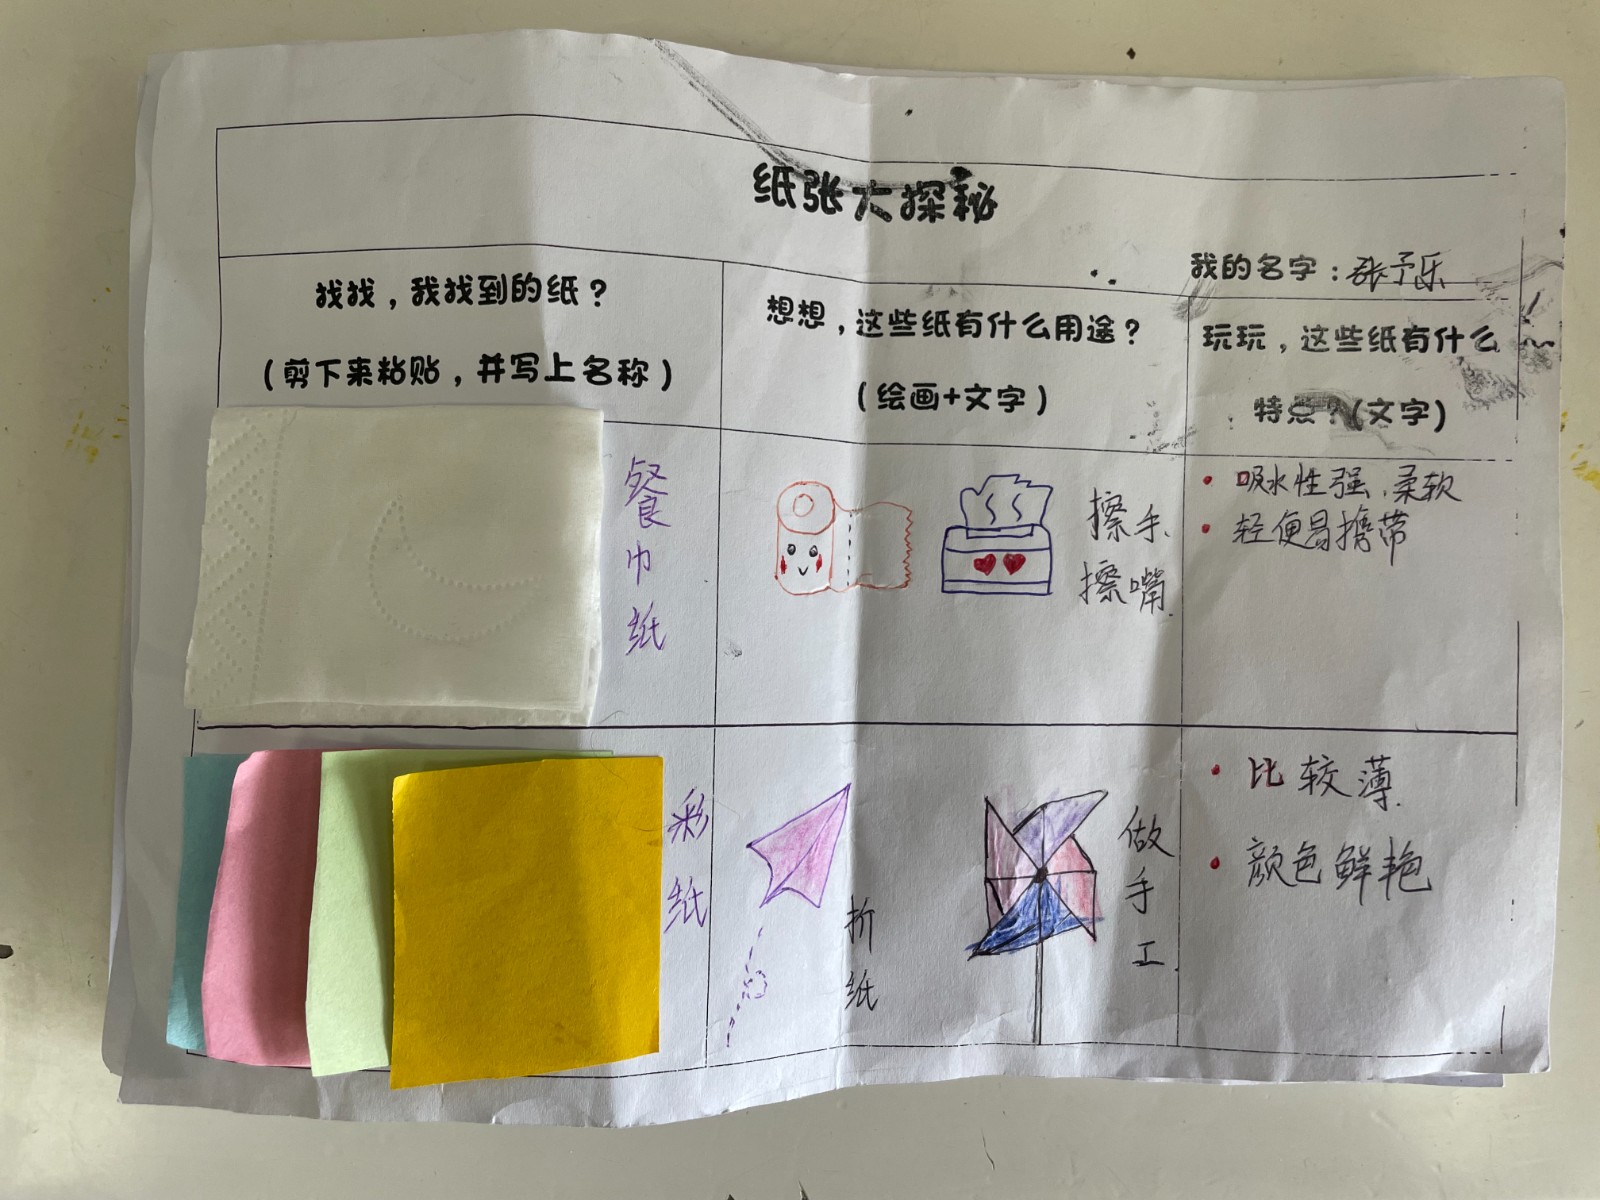 纸张大探秘
我的名字：张予乐
找找，我找到的纸？
（剪下来粘贴，并写上名称）
想想，这些纸有什么用途？
（绘画+文字）
玩玩，这些纸有什么
特点？（文字）
餐巾纸
擦手、
擦嘴.
• 吸水性强、柔软
• 轻便易携带
彩纸
折纸
做手工.
• 比较薄.
• 颜色鲜艳